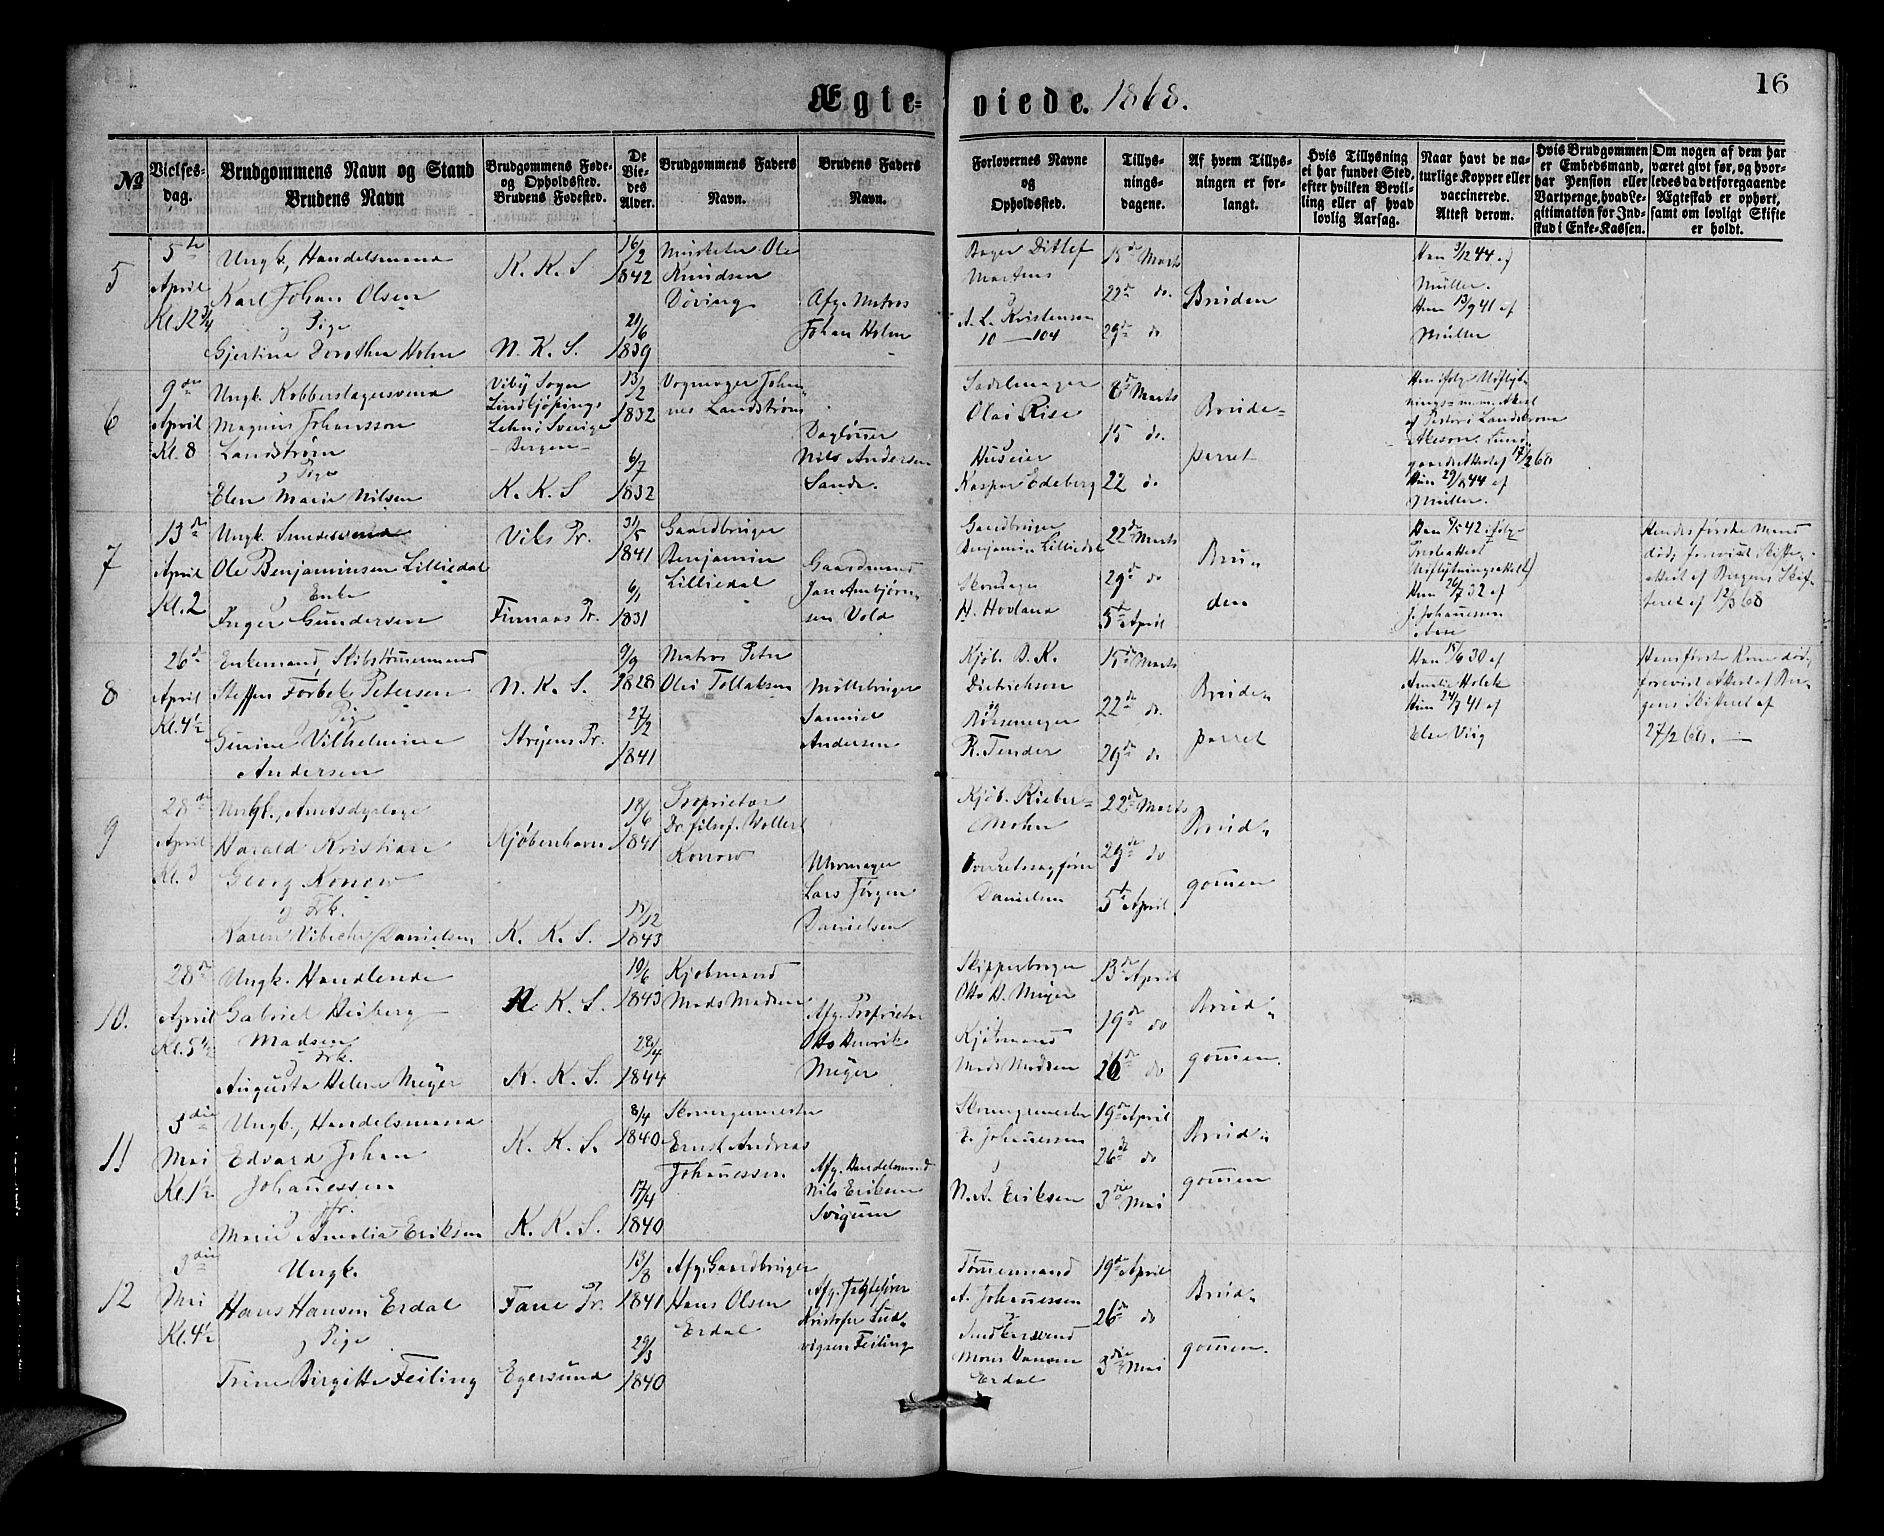 16
Ægteviede. 1868.
No
Vielsesdag.
Brudgommens Navn og Stand
Brudens Navn
Brudgommens Føde- og Opholdssted.
Brudens Fødested.
De Viedes Alder.
Brudgommens Faders Navn.
Brudens Faders Navn.
Forlovernes Navne og Opholdssted.
Tillysningsdagene.
Af hvem Tillysningen er forlangt.
Hvis Tillysning ei har fundet Sted, efter hvilken Bevilling eller af hvad lovlig Aarsag.
Naar havt de naturlige Kopper eller vaccinerede. Attest derom.
Hvis Brudgommen er Embedsmand, har Pension eller Vartpenge, hvad Legitimation for Indskud i Enke-Kassen.
Om nogen af dem har været givt før, og hvorledes da det foregaaende Ægteskab er ophørt, samt om lovligt Skifte er holdt.
5
5te
April
Kl. 12 3/4
Ungk., Handelsmand
Karl Johan Olsen
og Pige
Gjertine Dorothea Holm
K. K. S
N. K. S.
16/2
1842
21/6
1839
Ole
Knudsen
Døving
Afg. Matros
Johan Holm
Bager Ditlef
Martens
og
A. L. Kristensen
10 — 104
15de Marts
22de do.
29de do
Bruden
Han 3/12 44 af
Müller.
Hun 13/9 41 af
Müller
6
9de
April
Kl. 8
Ungk. Kobberslagersvend
Magnus Johansson
Landstrøm
og Pige
Elen Marie Nilsen
Viby Sogn
Lindkjøpings
Lehn i Sverige
- Bergen -
K. K. S
13/2
1832
6/7
1832
Vognmager Johannes Landstrøm
Dagløner
Nils Andersen
Sande.
Sadelmager
Olai Rise
Huseier
Kaspar Edeberg
8de Marts
15 do.
22 do
Brudeparret
17/2 68
Hun 29/8 44 af
Müller.
7
13de
April
Kl. 2
Ungk.
Ole Benjaminsen Lilliedal
og Enke
Inger Gundersen
Viks Pr.
Finnaas Pr.
31/5
1841
6/1
1831
Gaardbruger
Benjamin
Lilliedal
Gaardmand
Jan Ambjørnsen Vold
Gaardbruger
Benjamin Lilliedal
Skomager
H. Hovland
22de Marts
29de do
5te April
Bruden
Han 8/5 42 ifølge
Hun 26/7 32 af
J. Johannessen
Hendes første Mand
død, forevist Skifteattest af Bergens Skifteret af 12/3 68
8
26de
April
Kl. 4 1/2
Enkemand, Skibstømmermand
Steffen Førbek Petersen
og Pige
Gurine Vilhelmine
Andersen
N. K. S.
Stryens Pr.
9/9
1828
27/2
1841
Matros Peter
Olai Tollaksen
Møllebruger
Samuel
Andersen
Kjøb. D. K.
Dietrichson
og
R. Tender
15de Marts
22de do.
29de do
Brudeparret
Han 15/6 30 af
Amalie Holck
Hun 24/9 41 af
Else Viig
Hans første Kone død,
forevist Attest af Bergens Skifteret af
27/2 68. —
9
28de
April
Kl. 3
Ungk.,
Harald Kristian
Georg Konow
og Frk.
Karen Vibeche Danielsen
Kjøbenhavn
K. K. S.
18/6
1841
12
1843
Proprietær
Dr. filosof. Wollert
Konow
Uhrmager
Lars Jørgen
Danielsen
Kjøb. Rieber-
Mohn
Overretssagfører
Danielsen
22de Marts
29de do
5te April.
Brudgommen
10.
28de
April
Kl. 5 1/2
Ungk. Handlende
Gabriel Heiberg
Madsen
og Frk.
Augusta Helene Meyer
N. K. S.
K. K. S.
10/6
1843
28/4
1844
Kjøbmand
Mads Madsen
Afg. Proprietær
Otto Henrik
Meyer
Otto H. Meyer
Kjøbmand
Mads Madsen
13de April
19de do
26de do
Brudgommen.
11
3die
Mai
Kl. 1 1/2
Ungk., Handelsmand
Edvard Johan
Johannessen
og Jfr.
Marie Amalia Eriksen
K. K. S.
K. K. S.
8/4
1840
17/4
1840
Ernst Andreas
Johannessen
Afg. Handelsmand
Nils Eriksen
Svigum
E. Johannessen
N. A. Eriksen
19de April
26de do
3die Mai
Brudgommen
12
3die
Mai
Kl. 4 1/2
Ungk.
Hans Hansen Erdal
og Pige
Trine Birgitte Feiling
Fane Pr.
Egersund
18/8
1841
29/3
1840
Afg. Gaardbruger
Hans Olsen
Erdal
Afg. Jagtefører
Kristofer Ludvigsen Feiling
Tømmermand
A. Johannessen
og
Mons Hansen
Erdal
19de April
26de do
3die Mai
Brudgommen.